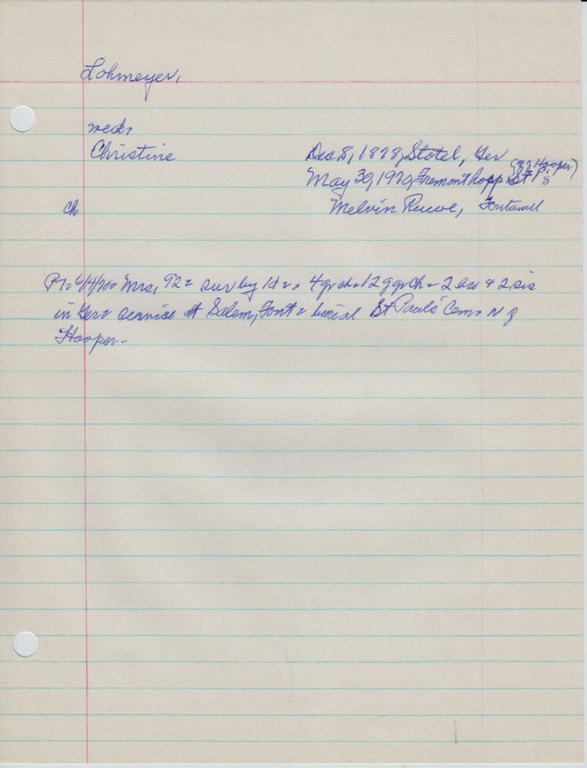 Lohmeyer,
wed:
Christine Dec 8, 1878, Stotel, Ger
(N of Hooper)
May 30, 1970, Fremont hosp St P's
ch Melvin Ruwe, Fontanell
6/4/70 = Mrs, 92 = sur by 1d = 4 gr ch = 12 ggr ch = 2 & 2 sis
in Ger = service at Salem, Font = burial St Paul's Cem = N of
Hooper -